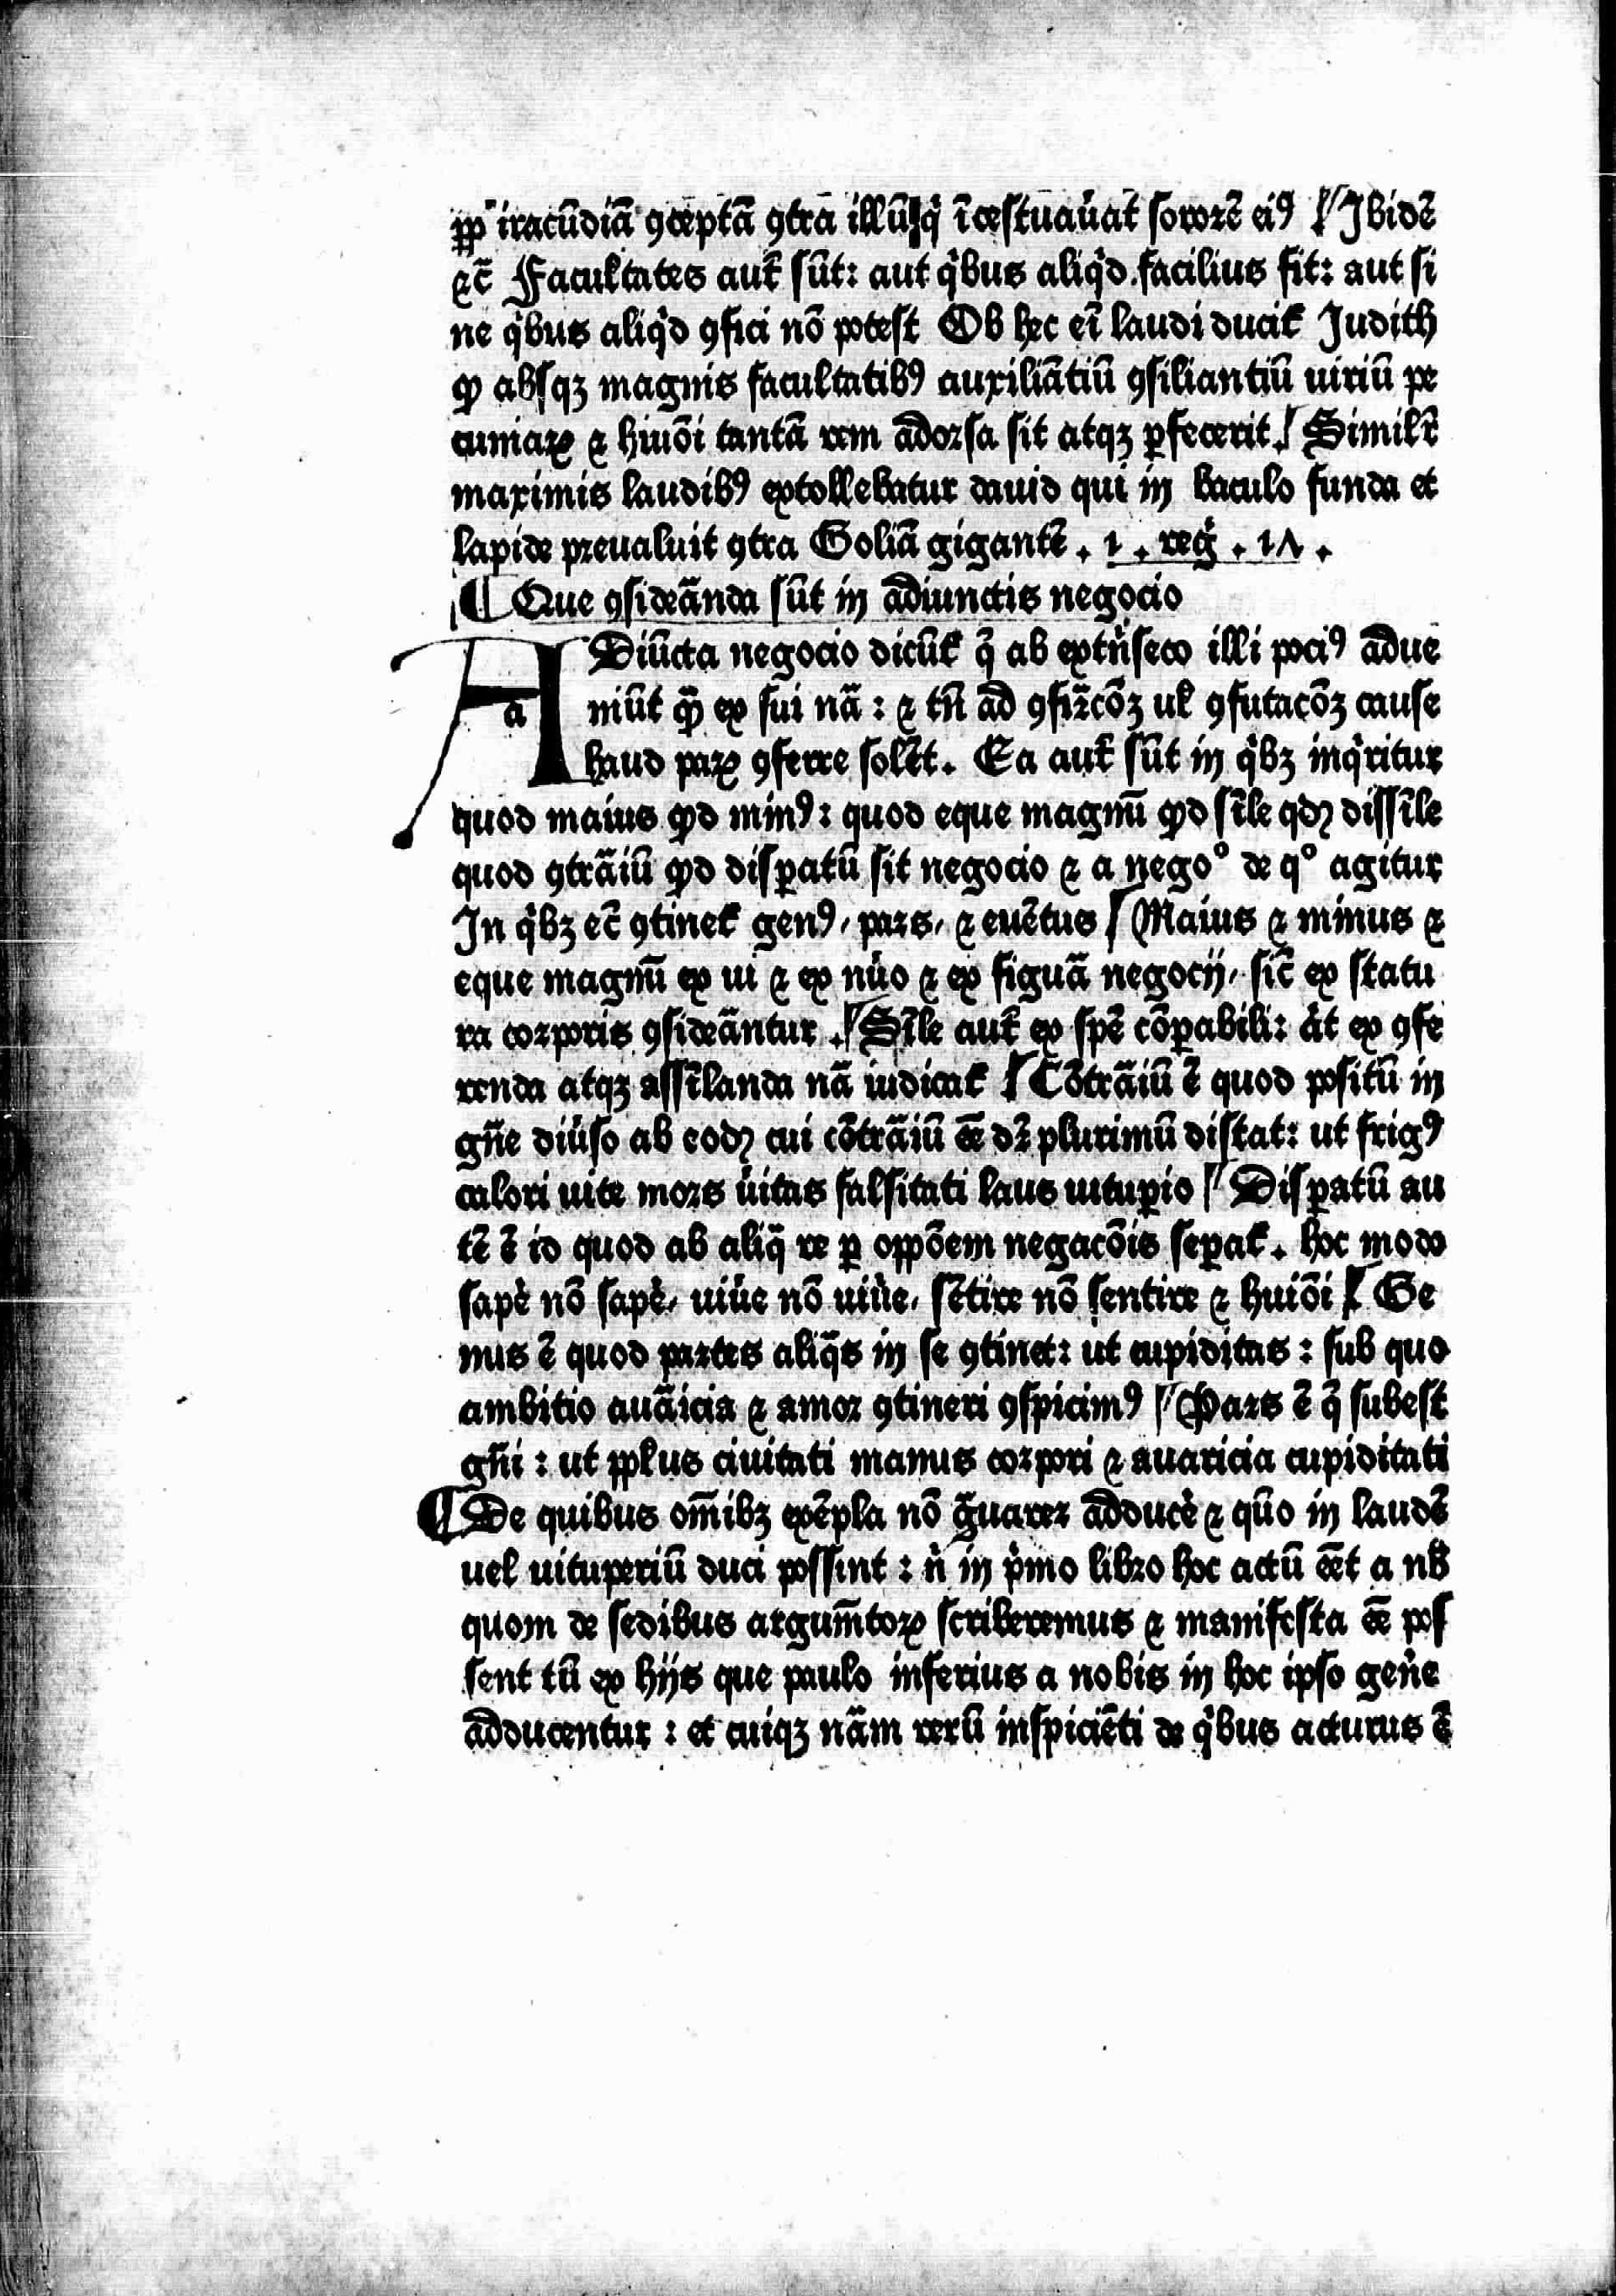 ꝓp̄ iracūdiā ꝯceptā ꝯtra illū qͥ īcestuaūat sororē eiꝰ Ibidē
ꝛc̄ Facultates aut̄ sūt: aut qͥbus aliqͥd facilius fit: aut si
ne qͥbus aliqͥd ꝯfici nō potest Ob hec eī laudi ducit᷑ Judith
ꝙ absqꝫ magnis facultatibꝰ auxiliātiū ꝯsiliantiū uiriū pe
cuniaꝝ ⁊ hiuōi tantā rem adorsa sit atqꝫ ꝑfecerit Similr̄
maximis laudibꝰ extollebatur dauid qui in baculo funda et
lapide preualuit ꝯtra Goliā gigantē . 1 . reḡ . 17 .
¶ Que ꝯsiderāda sūt in adiunctis negocio
A Diūcta negocio dicūt᷑ q̄ ab extrīseco illi pociꝰ adue
niūt qͣꝫ ex sui nā : ⁊ tn̄ ad ꝯfirꝫcōꝫ ul̄ ꝯfutacōꝫ cause
haud paꝝ ꝯferre solēt. Ea aut̄ sūt in qͥbꝫ inqͥritur
quod maius ꝙd minꝰ: quod eque magnū ꝙd sīle qdꝫ dissīle
quod ꝯtrāiū ꝙd disꝑatū sit negocio ⁊ a negoº de qº agitur
In qͥbꝫ ec̄ ꝯtinet᷑ genꝰ, pars, ⁊ euētus Maius ⁊ minus ⁊
eque magnū ex ui ⁊ ex nūo ⁊ ex figuā negocij, sic̄ ex statu
ra corporis ꝯsideāntur . Sīle aut̄ ex spē cōꝑabili: āt ex ꝯfe
renda atqꝫ assīlanda nā iudicat᷑ Cōtrāiū ē quod positū in
gn̄e diūso ab eodꝫ cui cōtrāiū eē dꝛ̄ plurimū distat: ut frigꝰ
calori uite mors ūitas falsitati laus uituꝑio Disꝑatū au
tē ē id quod ab aliqͣ re ꝑ oppōem negacōis seꝑat᷑. hoc modo
sapē nō sapē, uiūe nō uiūe, sētire nō sentire ⁊ huiōi Ge
nus ē quod partes aliqͣs in se ꝯtinet: ut cupiditas : sub quo
ambitio auāicia ⁊ amor ꝯtineri ꝯspicimꝰ Pars ē q̄ subest
gn̄i : ut ppl̄us ciuitati manus corpori ⁊ auaricia cupiditati
¶ De quibus om̄ibꝫ exēpla nō gͣuarer adducē ⁊ quō in laudē
uel uituperiū duci possint : n̄ in pͥmo libro hoc actū eēt a nb̄
quom de sedibus argum̄toꝝ scriberemus ⁊ manifesta eē pos
sent tū ex hijs que paulo inferius a nobis in hoc ipso gen̄e
adducentur : et cuiqꝫ nām rerū inspiciēti de qͥbus acturus ē